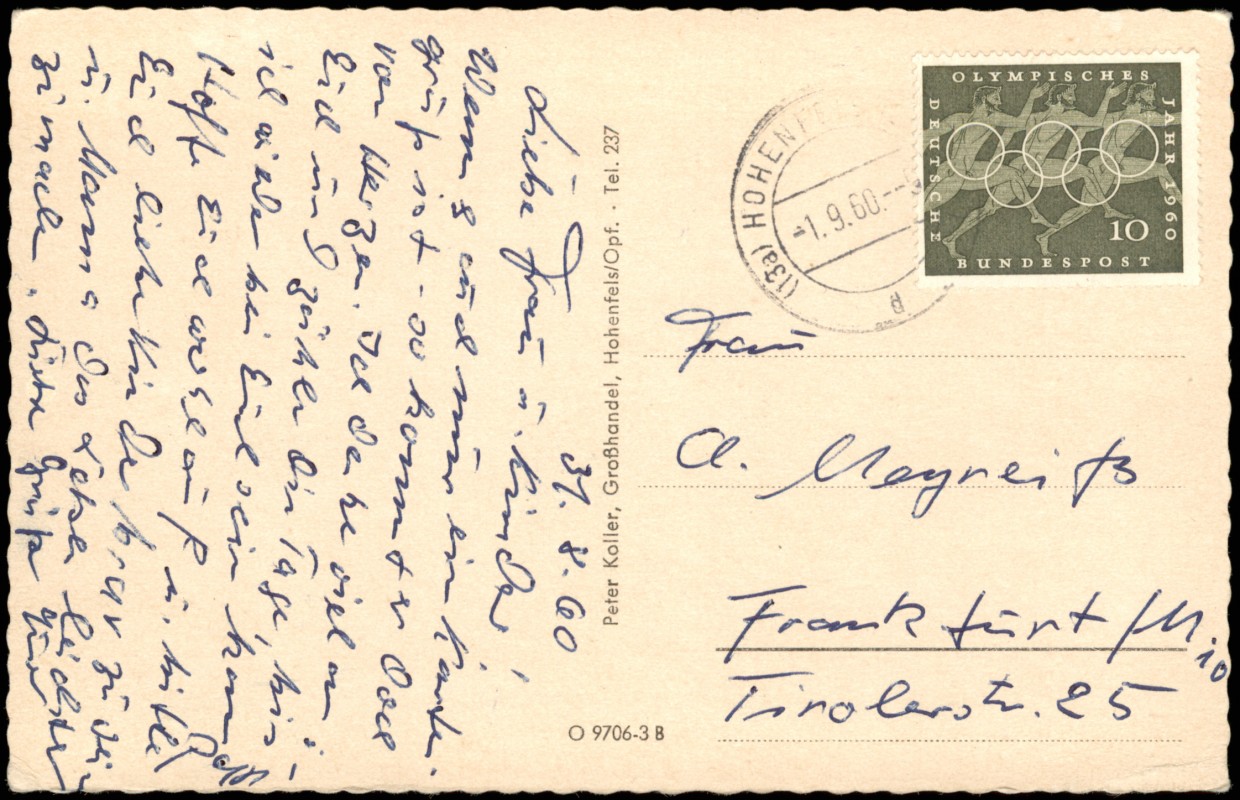 31.8.60
Liebe Frau u. Kinder!
Wenn's auch nur ein Karten-
gruß ist - so kommt er doch
von Herzen. Ich denke viel an
Euch und zähle die Tage, bis
ich wieder bei Euch sein kann.
Hoffe Euch wohlauf u. bitte
Euch liebe Kinder brav zu sein
u. Mama das Leben leichter
zu machen. Liebe Grüße Euer
Peter Koller, Großhandel, Hohenfels/Opf. · Tel. 237
O 9706-3 B
OLYMPISCHES
JAHR 1960
DEUTSCHE
BUNDESPOST
10
(13a)
-1.9.60.--
Frau
A.
Frankfurt/M.
10
Tirolerstr. 25